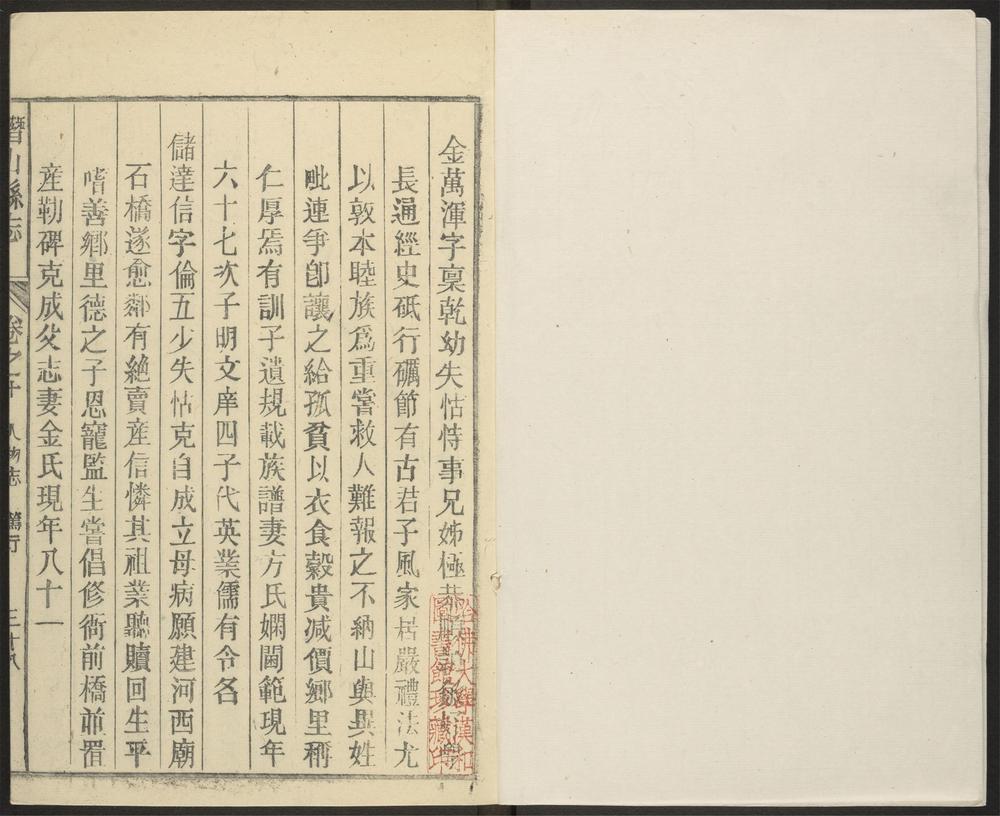 金萬渾字稟乾幼失怙恃事兄姊極恭
長通經史砥行礪節有古君子風家居嚴禮法尤
以敦本睦族爲重嘗救人難報之不納山與異姓
毗連爭卽讓之給孤貧以衣食穀貴減價鄉里稱
仁厚焉有訓子遺規載族譜妻方氏嫻閫範現年
六十七次子明文庠四子代英業儒有令名
儲達信字倫五少失怙克自成立母病願建河西廟
石橋遂愈鄰有絶賣産信憐其祖業聽贖回生平
嗜善鄉里德之子恩寵監生嘗倡修衙前橋並置
産勒碑克成父志妻金氏現年八十一
潛山縣志 卷之十 人物志 篤行 三十八
哈佛大學漢和
圖書館珍藏印